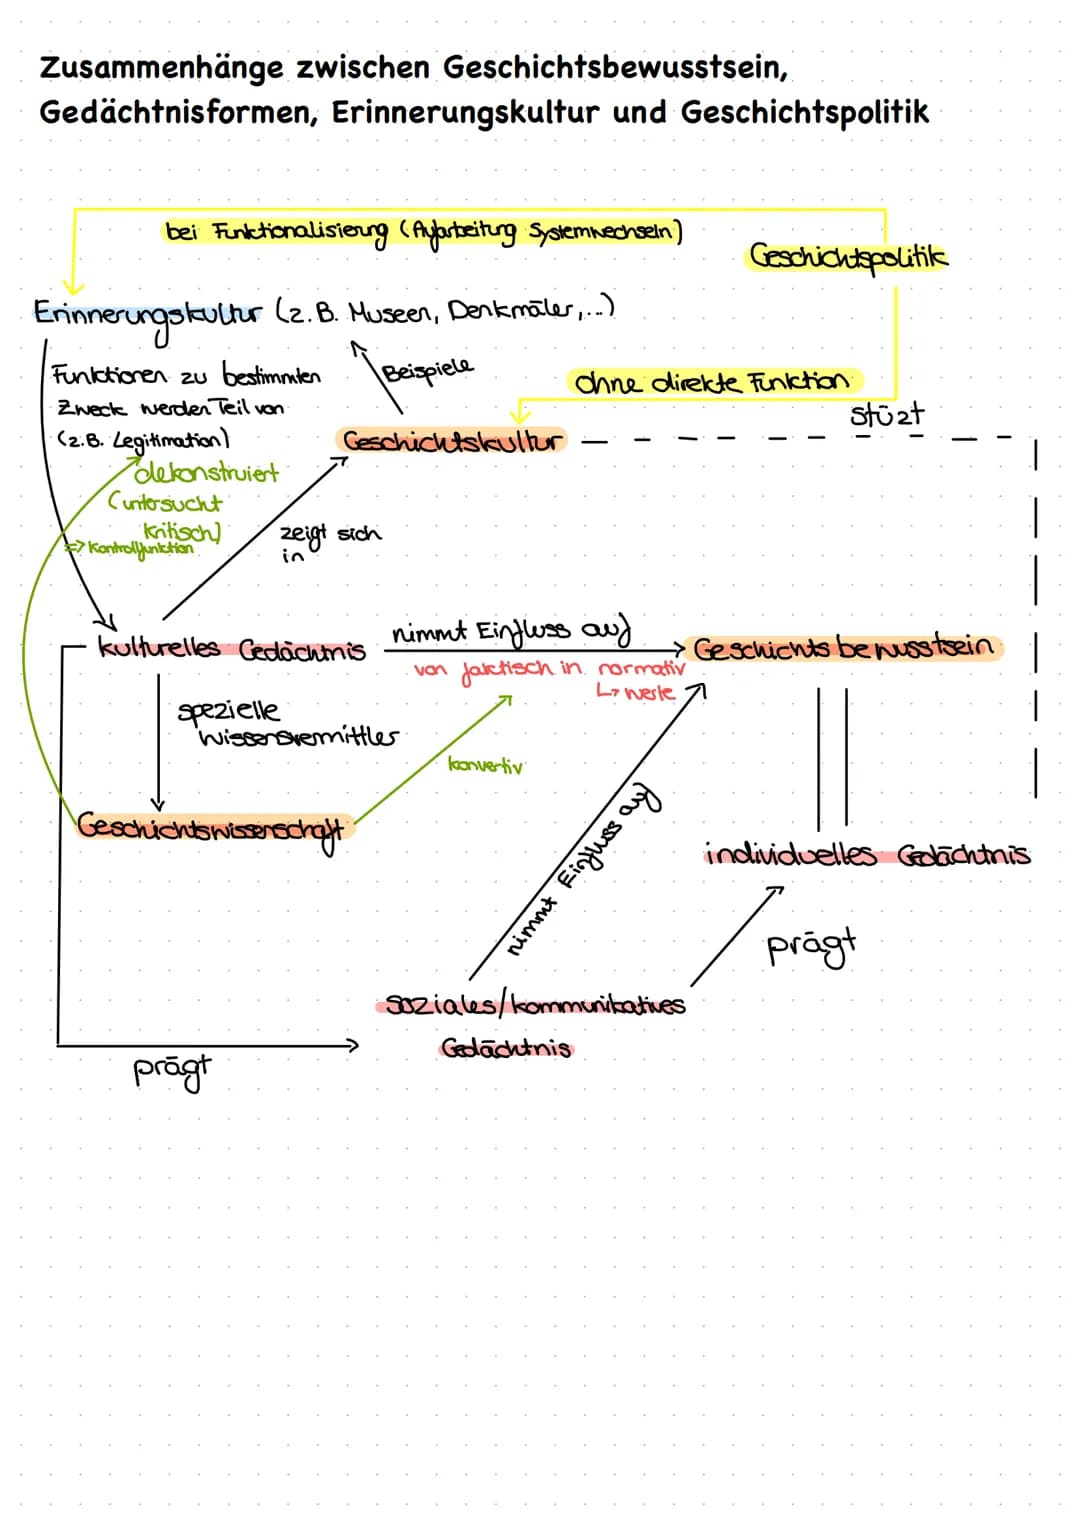 Zusammenhänge zwischen Geschichtsbewusstsein,
Gedächtnisformen, Erinnerungskultur und Geschichtspolitik
bei Funktionalisierung (Aufarbeitung Systemwechseln)
Geschichtspolitik
Erinnerungskultur (z.B. Museen, Denkmäler,...)
Funktionen zu bestimmten
Zweck werden Teil von
(z.B. Legitimation)
Beispiele
ohne direkte Funktion
stüzt
Geschichtskultur
dekonstruiert
(untersucht
kritisch)
=> Kontrollfunktion
zeigt sich
in
kulturelles Gedächtnis
nimmt Einfluss auf
Geschichtsbewusstsein
von faktisch in normativ
↳ Werte
spezielle
Wissensvermittler
konvertiv
Geschichtswissenschaft
nimmt Einfluss auf
individuelles Gedächtnis
prägt
soziales/kommunikatives
Gedächtnis
prägt